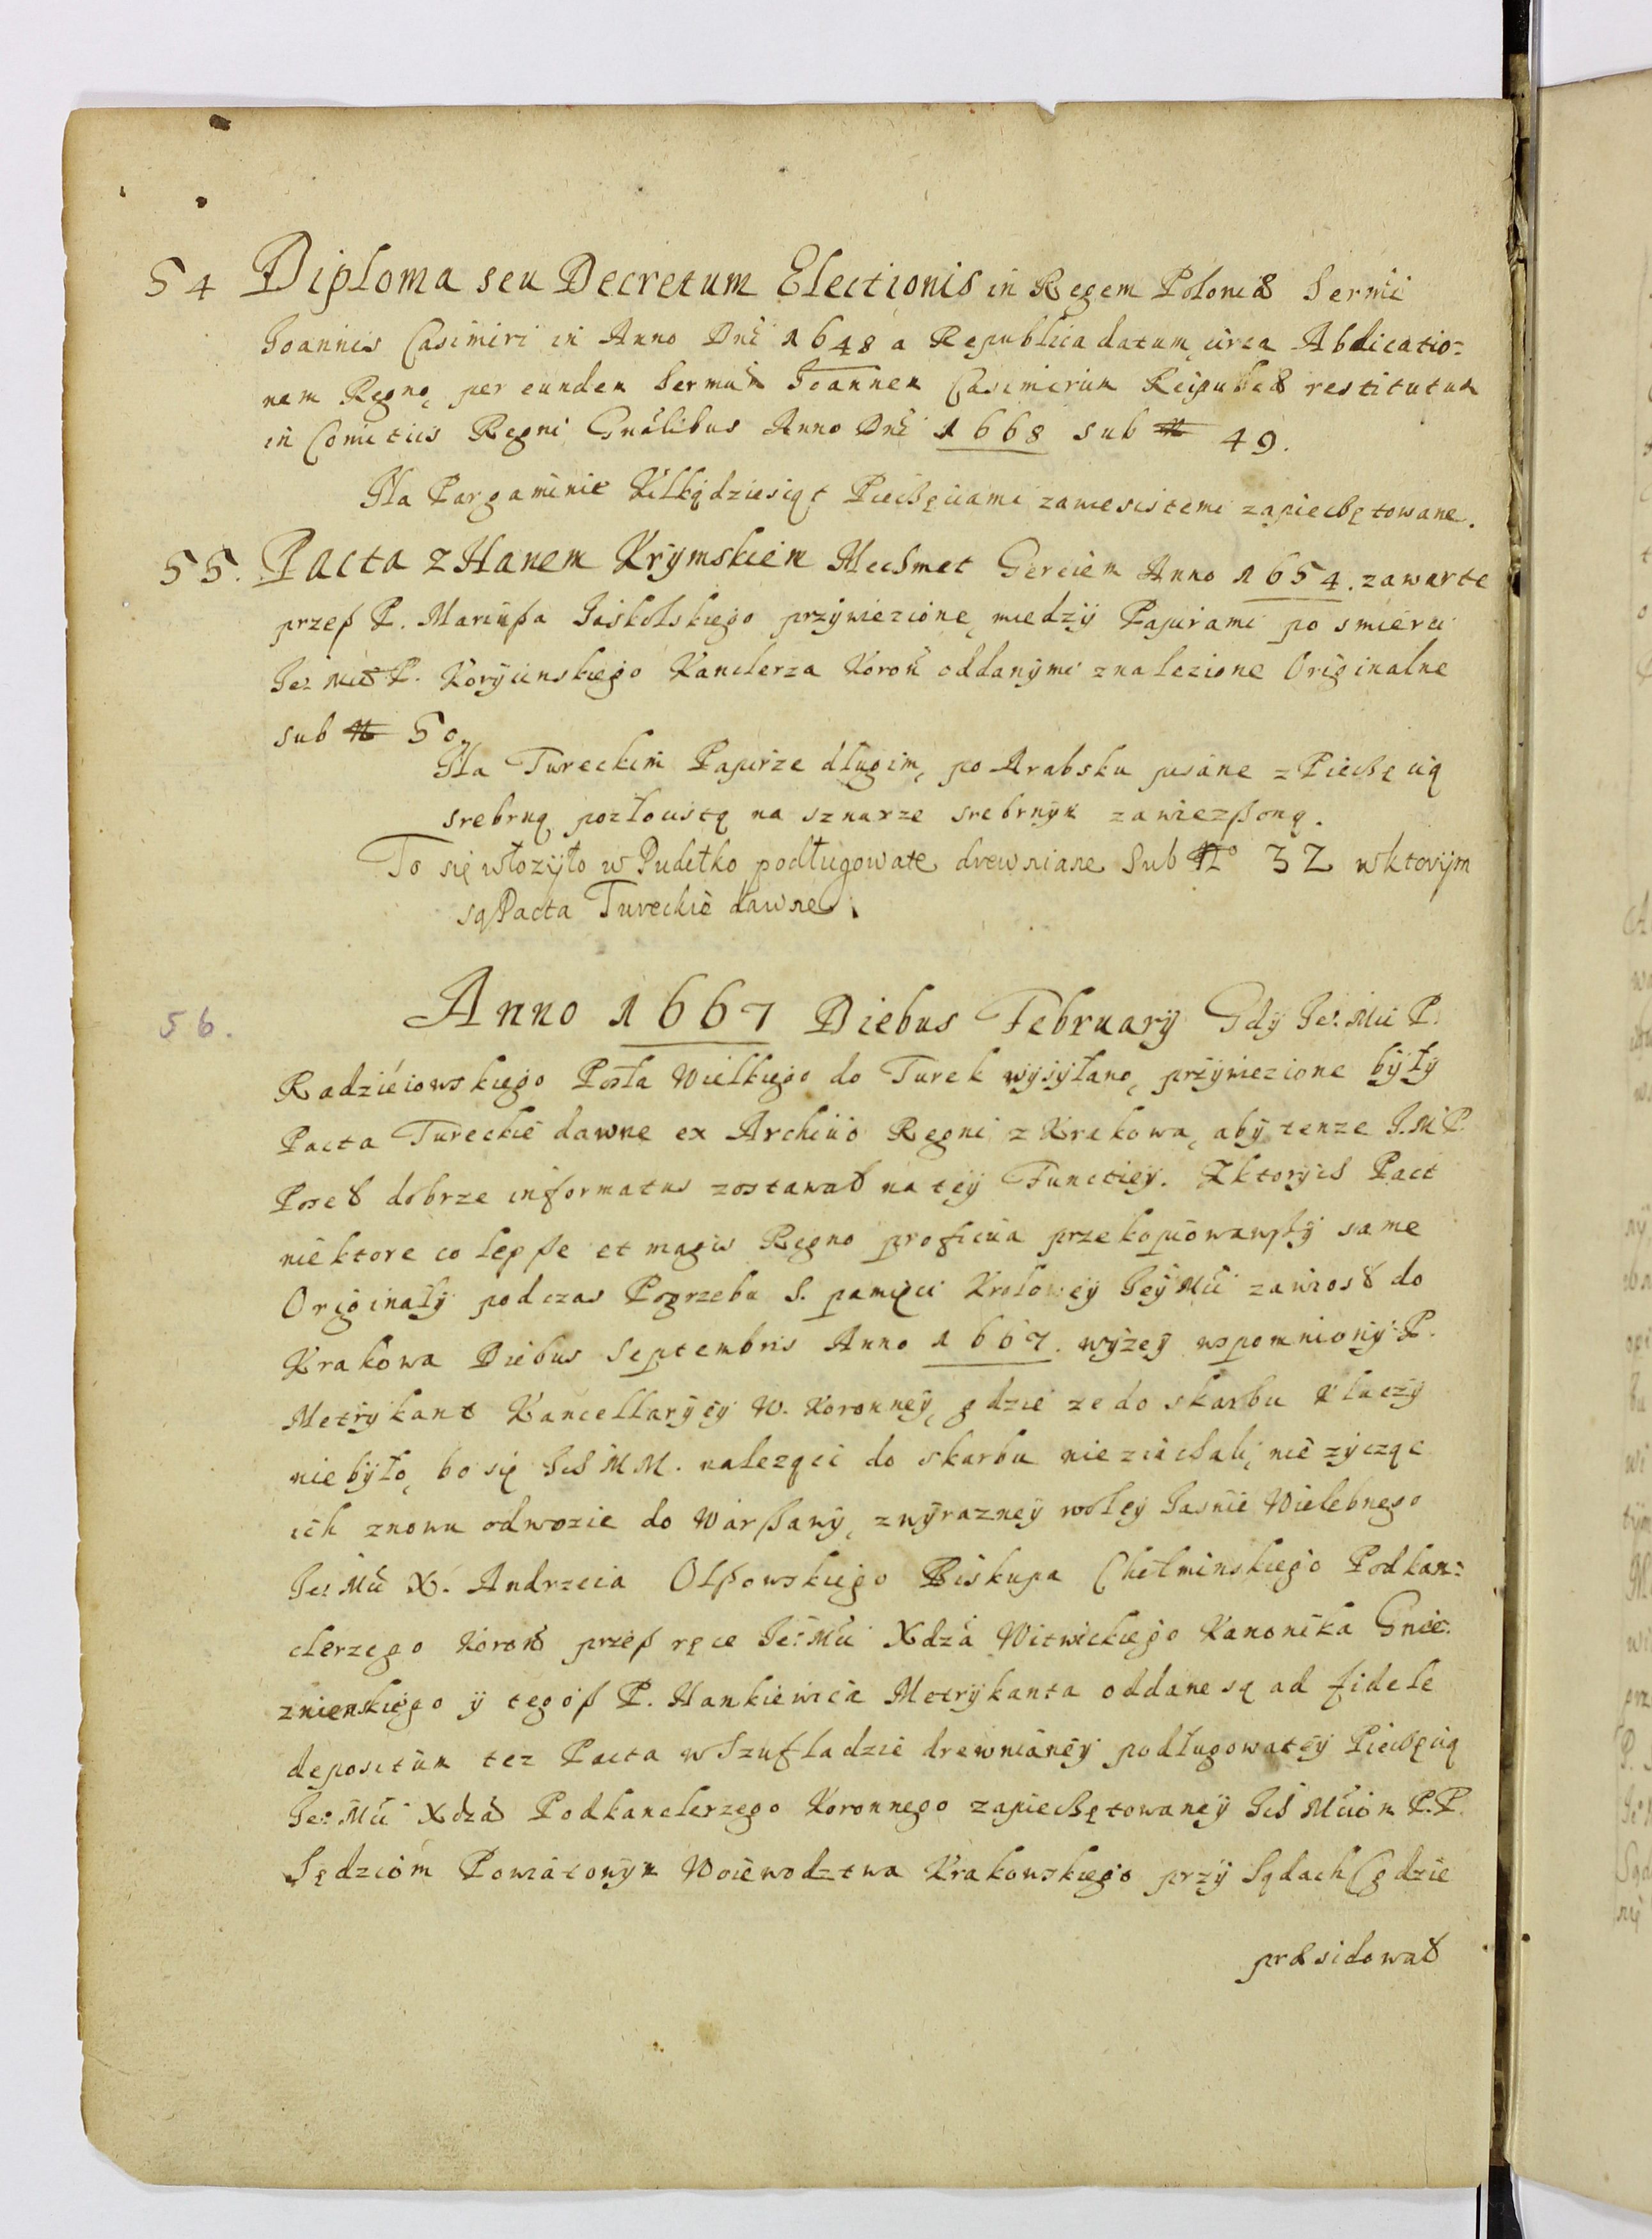 54 Diploma seu Decretum Electionis in Regem Poloniæ Sermi
Joannis Casimiri in Anno Dni 1648 a Republica datum, circa Abdicatio=
nem Regno, per eunden Sermum Joannem Casimirum Reipublicæ restitutum
in Comitiis Regni Gnalibus Anno Dni 1668 sub N 49.
Na Pargaminie Kilkądziesiąt Pieczęciami zawiesistemi zapieczętowane.
55. Pacta z Hanem Krymskiem Mechmet Gereiem Anno 1654. zawarte
przeß P. Mariußa Jaskolskiego przywiezione, miedzy Papirami po smierci
Je⁰ Mci P. Korycinskiego Kanclerza Koron oddanymi znalezione Originalne
sub N 50.
Na Tureckim Papirze długim, po Arabsku pisane z Pieczęcią
srebrną pozłocistą na sznurze srebrnym zawießoną.
To się włozyło w Pudełko podługowate drewniane Sub No 32 w ktorym
są Pacta Tureckie dawne.
56. Anno 1667 Diebus February Gdy Je⁰ Mci P.
Radzieiowskiego Posła Wielkiego do Turek wysyłano, przywiezione były
Pacta Tureckie dawne ex Archivo Regni z Krakowa, aby tenze J.M.P.
Poseł dobrze informatus zostawał na tey Functiey. Z ktorych Pact
niektore co lepße et magis Regno proficua przekopiowawßy same
Originały podczas Pogrzebu S. pamięci Krolowey Jey Mci zawiosł do
Krakowa Diebus Septembris Anno 1667. wyzey wspomniony P.
Metrykant Kancellaryey W. Koronney, gdzie ze do skarbu Kluczy
niebyło, bo się Ich MM. nalezący do skarbu nie ziachali, nie zycząc
ich znowu odwozic do Warßawy, z wyrazney woley Jasnie Wielebnego
Je⁰ Mci X. Andrzeia Olßowskiego Biskupa Chełminskiego Podkan=
clerzego Koron przeß ręce Je⁰ Mci Xdza Witwickiego Kanonika Gnie=
znienskiego y tegoß P. Hankiewica Metrykanta oddane są ad fidele
depositum tez Pacta w Szufladzie drewnianey podługowatey Pieczęcią
Je⁰ Mci Xdza Podkanclerzego Koronnego zapieczętowaney Ich Mciom P.P.
Sędziom Powiatowym Woiewodztwa Krakowskiego przy Sądach (gdzie
præsidował